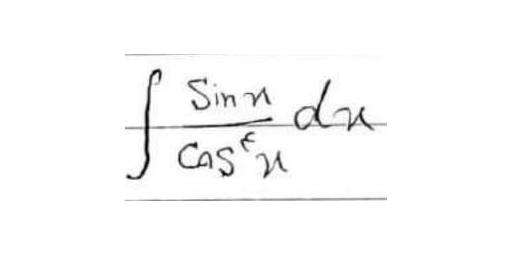 ∫ sin x / cos^۴ x dx